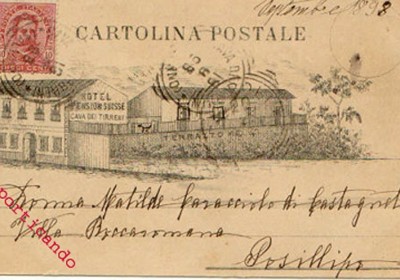 Settembre 1898
CARTOLINA POSTALE
HOTEL
PENSION SUISSE
CAVA DEI TIRRENI
Donna Matilde Caracciolo di Castagneto
Villa Roccaromana
Posillipo
porticando